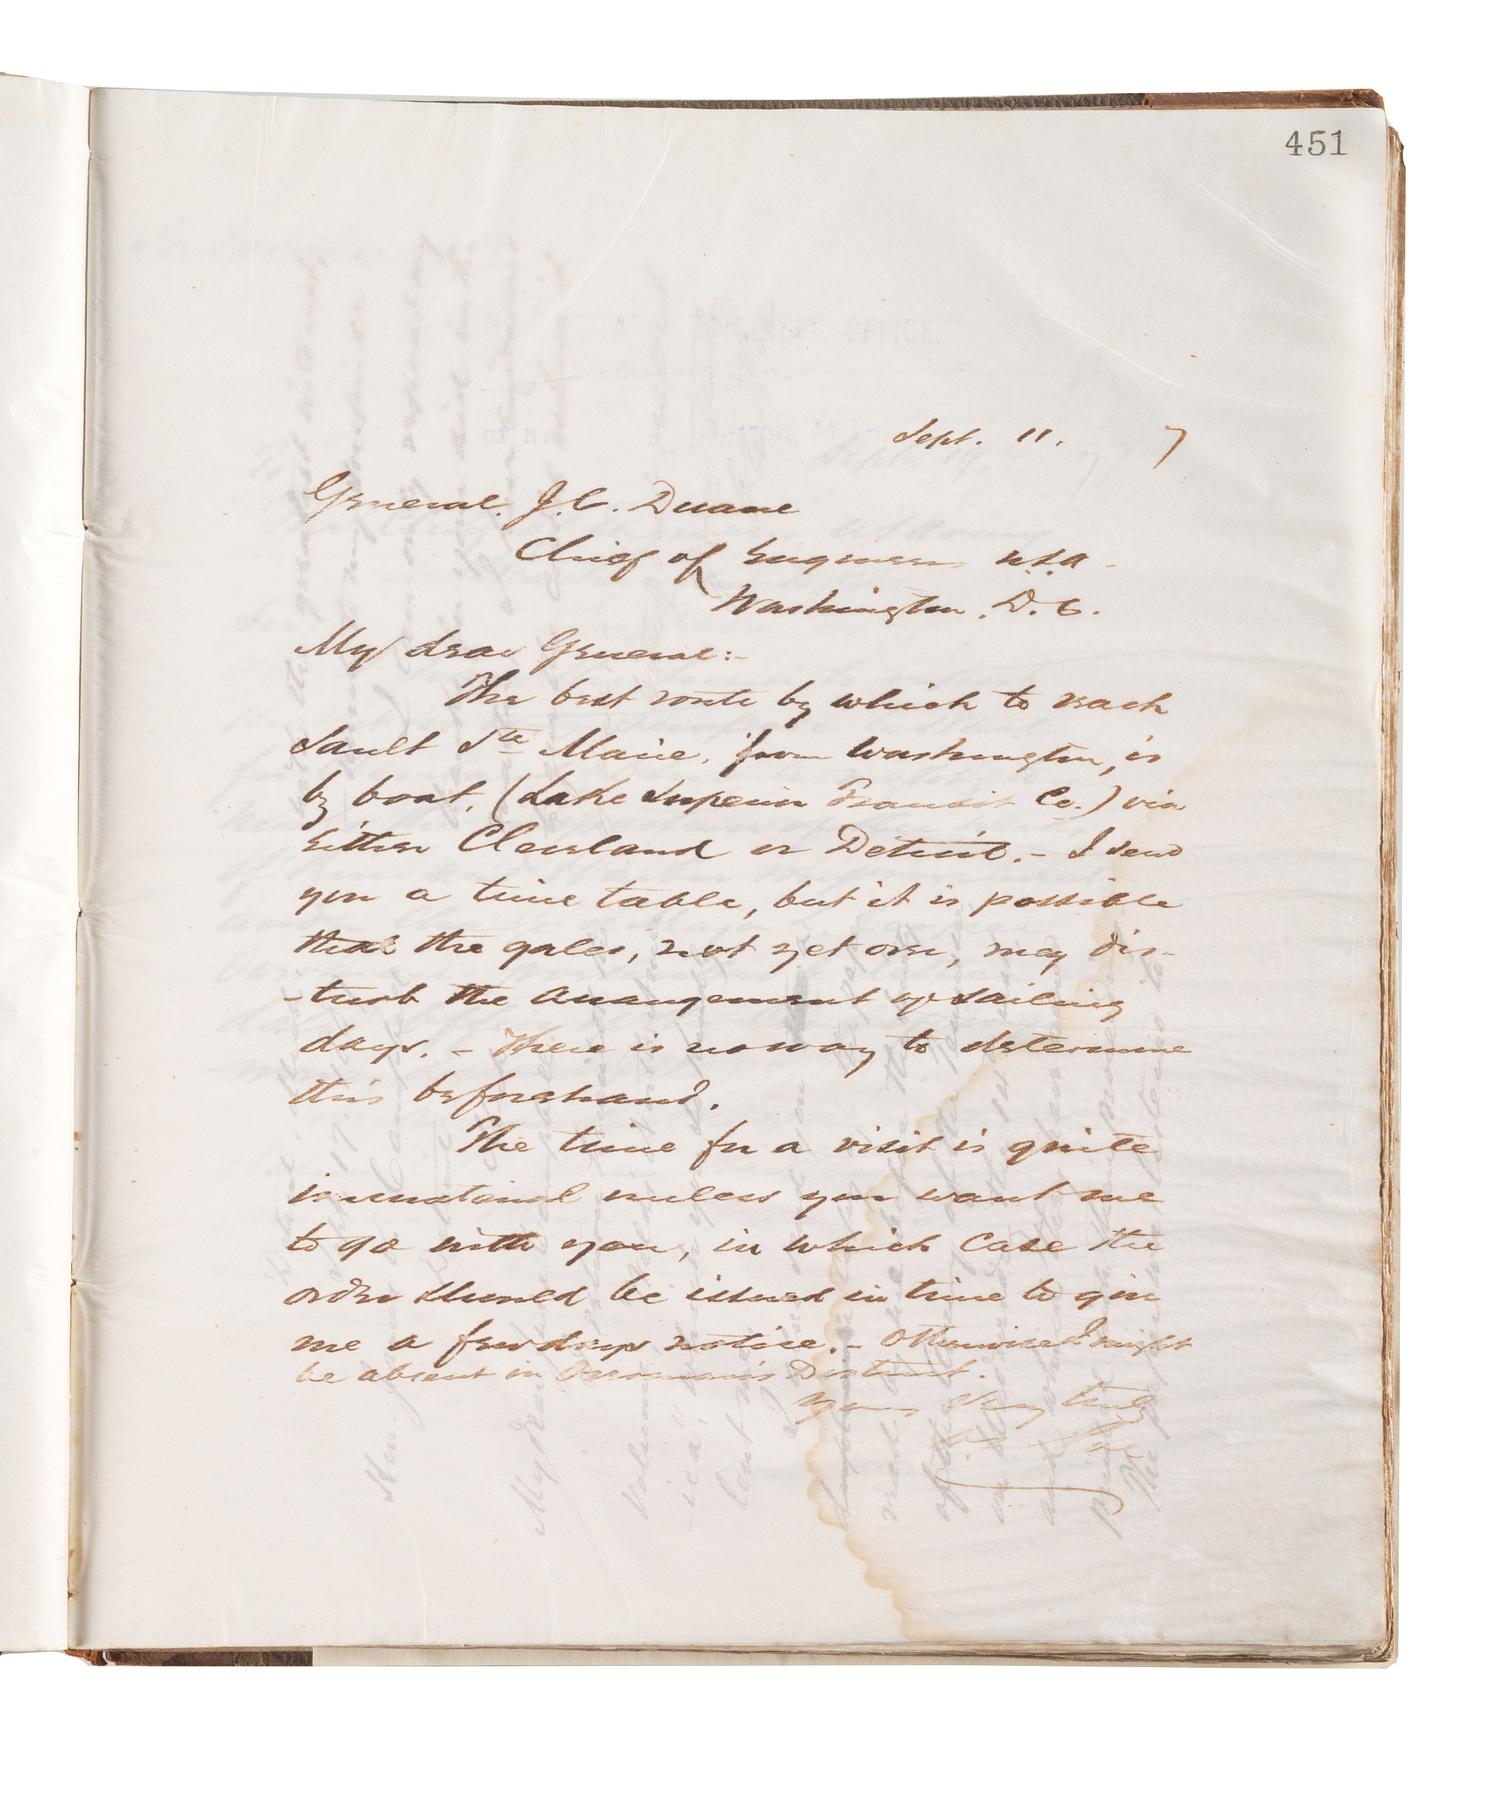 451
Sept. 11. 7
General. J. C. Duane
Chief of Engineers U.S.A.
Washington, D.C.
My dear General:-
The best route by which to reach
Sault Ste Marie, from Washington, is
by boat, (Lake Superior Transit Co.) via
either Cleveland or Detroit. - I send
you a time table, but it is possible
that the gales, not yet over, may dis-
-turb the arrangement of sailing
days. - There is no way to determine
this beforehand.
The time for a visit is quite
immaterial unless you want me
to go with you, in which case the
order should be issued in time to give
me a few days notice. - Otherwise I might
be absent in District.
Yours very truly